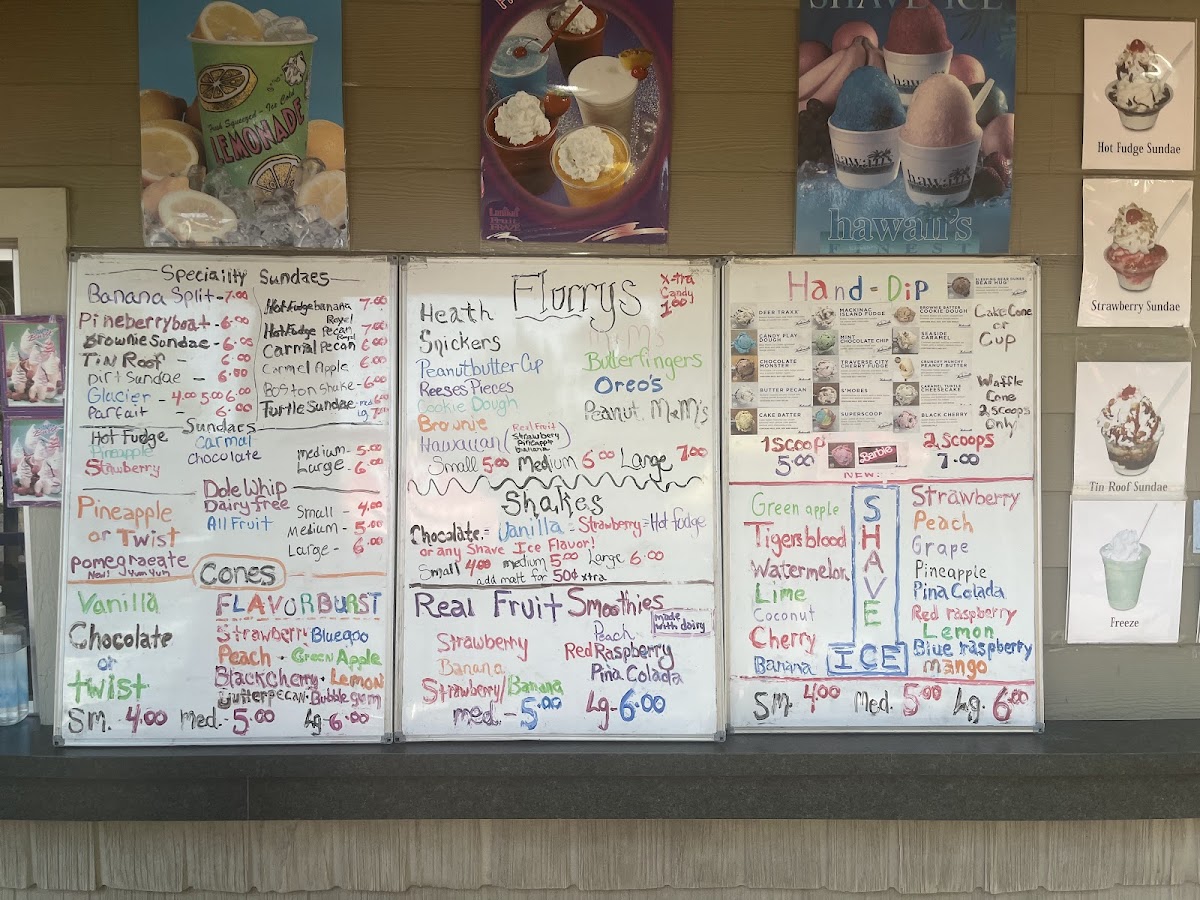 Fresh Squeezed - Ice Cold
LEMONADE
SHAVE ICE
hawaii's
hawaii's
hawaii's
hawaii's
Hot Fudge Sundae
Strawberry Sundae
Tin Roof Sundae
Freeze
Speciality Sundaes
Banana Split - 7.00
Pineberryboat - 6.00
Brownie Sundae - 6.00
Tin Roof - 6.00
Dirt Sundae - 6.00
Glacier - 4.00 5.00 6.00
Parfait - 6.00
Hot Fudge banana Royal 7.00
Hot Fudge Pecan Royal 7.00
Carmal Pecan 6.00
Carmel Apple 6.00
Boston Shake - 6.00
Turtle Sundae - med 6.00
Lg. 7.00
Sundaes
Hot Fudge
Pineapple
Strawberry
Carmal
Chocolate
medium - 5.00
Large - 6.00
Pineapple
or Twist
pomegraeate
New! Yum Yum
Dole Whip
Dairy free
All Fruit
Small - 4.00
Medium - 5.00
Large - 6.00
Cones
Vanilla
Chocolate
or
twist
FLAVORBURST
Strawberri Bluegoo
Peach - Green Apple
Blackcherry - Lemon
Butterpecan - Bubble gum
Sm. - 4.00 med. - 5.00 Lg - 6.00
Flurrys
x-tra
Candy
1.00
Heath
Snickers
Peanutbutter Cup
Reeses Pieces
Cookie Dough
Brownie
Hawaiian (Real Fruit
Strawberry
Pineapple
banana)
M m's
Butterfingers
Oreo's
Peanut, M&M's
Small 5.00 Medium 6.00 Large 7.00
Shakes
Chocalate = Vanilla = Strawberry = Hot fudge
or any Shave Ice Flavor!
Small 4.00 medium 5.00 Large 6.00
add malt for 50¢ xtra
Real Fruit Smoothies
made
with dairy
Strawberry
Banana
Strawberry/Banana
Peach
Red Raspberry
Pina Colada
med. - 5.00 Lg - 6.00
Hand-Dip
SLEEPING BEAR DUNES
BEAR HUG
DEER TRAXX
MACKINAC ISLAND FUDGE
BROWNIE BATTER COOKIE DOUGH
CANDY PLAY DOUGH
MINT CHOCOLATE CHIP
SEASIDE CARAMEL
CHOCOLATE MONSTER
TRAVERSE CITY CHERRY FUDGE
CRUNCHY MUNCHY PEANUT BUTTER
BUTTER PECAN
S'MORES
CARAMEL TURTLE CHEESECAKE
CAKE BATTER
SUPERSCOOP
BLACK CHERRY
Cake Cone
or
Cup
Waffle
Cone
2 scoops
Only
1 Scoop
5.00
Barbie
NEW!
2 Scoops
7.00
SHAVE
ICE
Green apple
Tigersblood
Watermelon
Lime
Coconut
Cherry
Banana
Strawberry
Peach
Grape
Pineapple
Pina Colada
Red raspberry
Lemon
Blue raspberry
mango
Sm. 4.00 Med. 5.00 Lg. 6.00